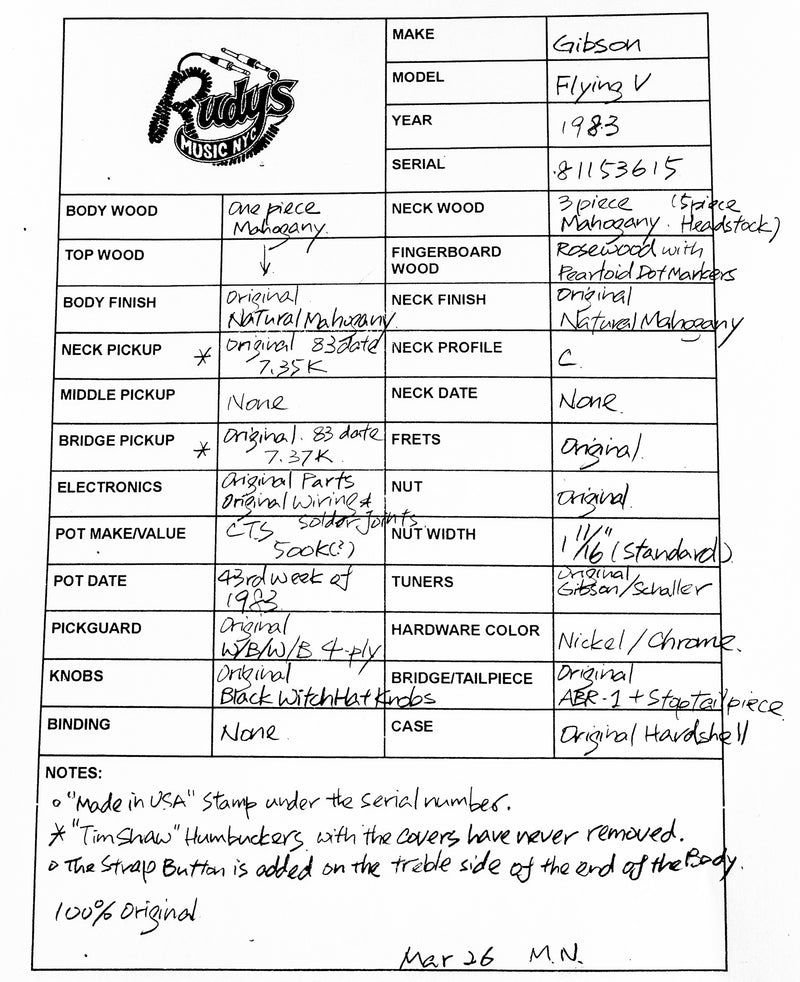 Rudy's
MUSIC NYC
MAKE Gibson
MODEL Flying V
YEAR 1983
SERIAL 81153615
BODY WOOD One piece
Mahogany.
NECK WOOD 3 piece (5 piece
Mahogany. Headstock)
TOP WOOD ↓
FINGERBOARD
WOOD
Rosewood with
Pearloid Dot Markers
BODY FINISH Original
Natural Mahogany
NECK FINISH Original
Natural Mahogany
NECK PICKUP * Original 83 date
7.35K
NECK PROFILE C.
MIDDLE PICKUP None
NECK DATE None.
BRIDGE PICKUP * Original. 83 date
7.37K.
FRETS Original.
ELECTRONICS Original Parts
Original Wiring &
Solder Joints
NUT Original.
POT MAKE/VALUE CTS
500K(?)
NUT WIDTH 1 11/16" (Standard)
POT DATE 43rd week of
1983
TUNERS Original
Gibson/Schaller
PICKGUARD Original
W/B/W/B 4-ply
HARDWARE COLOR Nickel/Chrome.
KNOBS Original
Black Witch Hat Knobs
BRIDGE/TAILPIECE Original
ABR-1 + Stop Tail piece
BINDING None.
CASE Original Hardshell
NOTES:
o "Made in USA" Stamp under the serial number.
* "Tim Shaw" Humbuckers with the covers have never removed.
o The Strap Button is added on the treble side of the end of the Body.
100% Original
Mar 26 M.N.